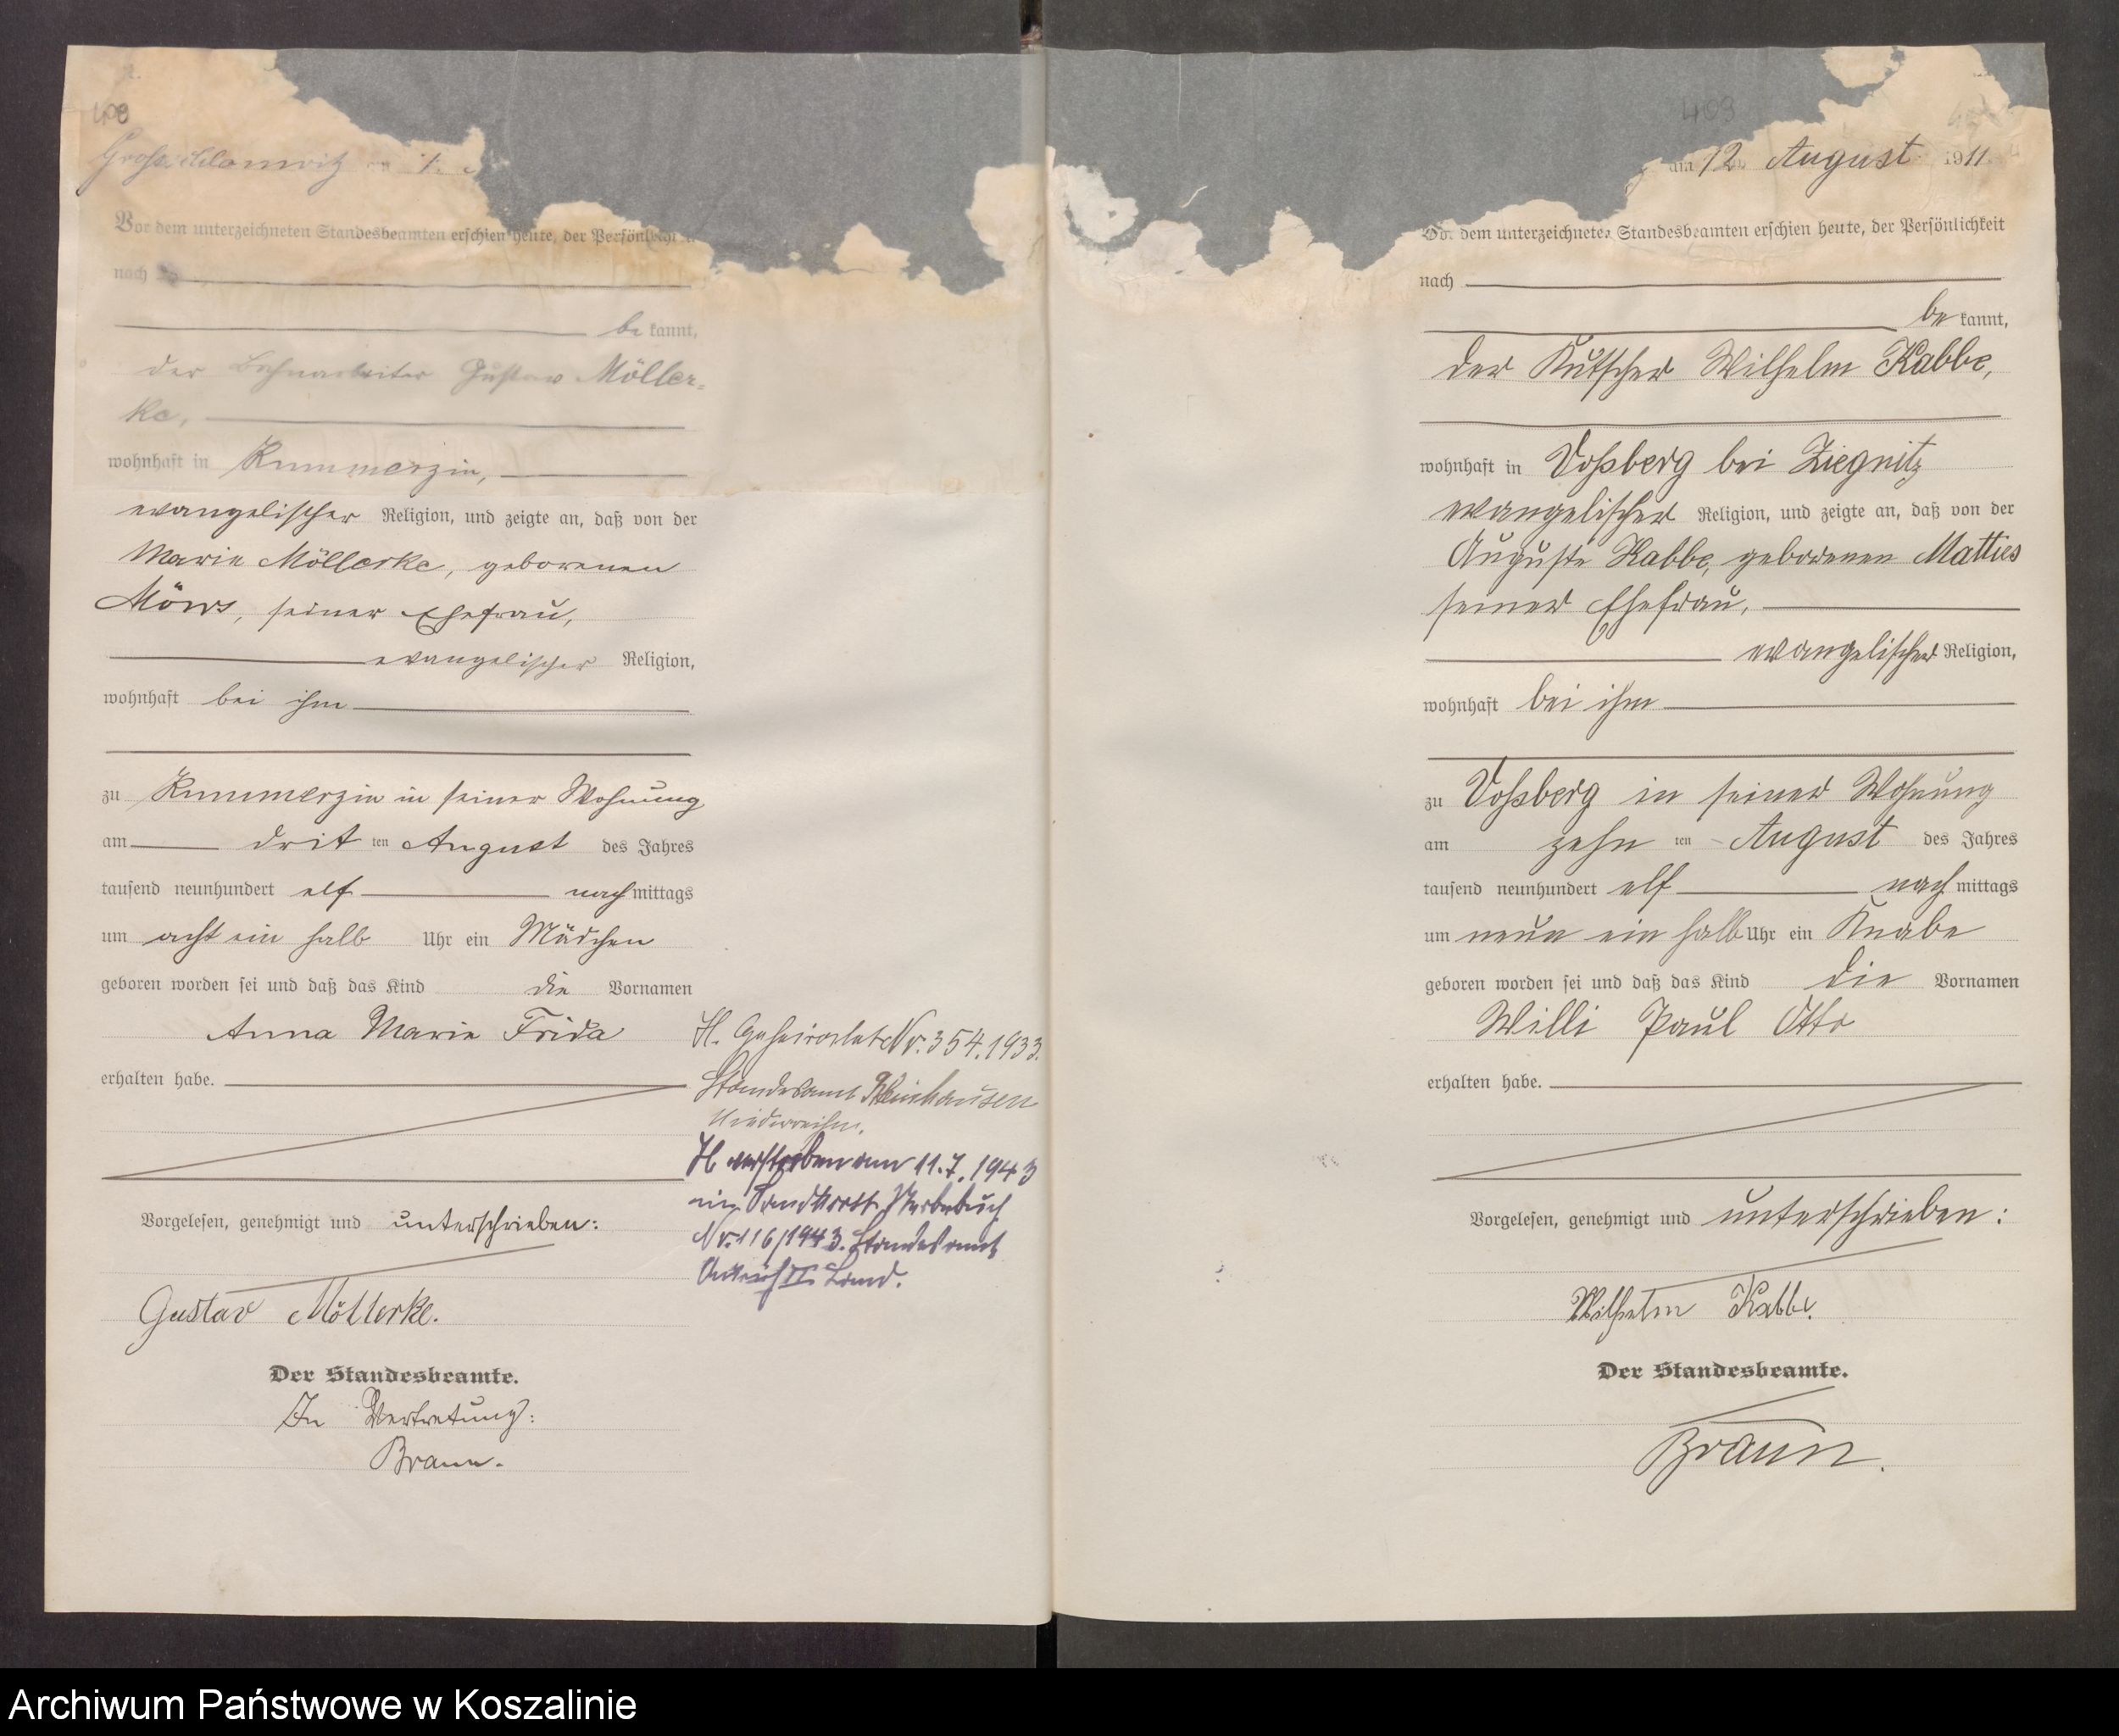 408
am
Vor dem unterzeichneten Standesbeamten erschien heute, der Persönlich
nach
be kannt,
der Bahnarbeiter Gustav Möller-
ke,
wohnhaft in Rummerzin,
evangelischer Religion, und zeigte an, daß von der
Marie Möllerke, geborenen
Mörs, seiner Ehefrau,
evangelischer Religion,
wohnhaft bei ihm
zu Rummerzin in seiner Wohnung
am drit ten August des Jahres
tausend neunhundert elf nach mittags
um acht ein halb Uhr ein Mädchen
geboren worden sei und daß das Kind die Vornamen
Anna Marie Frida
erhalten habe.
Vorgelesen, genehmigt und unterschrieben:
Gustav Möllerke.
Der Standesbeamte.
In Vertretung:
Braun.
H. Geheiratet Nr. 354.1933.
Standesamt Rheinhausen
Niederrhein.
H verstorben am 11.7.1943
in Sterbebuch
Nr. 116/1943. Standesamt
Aurich II Land.
409
am 12. August 1911
Vor dem unterzeichneten Standesbeamten erschien heute, der Persönlichkeit
nach
be kannt,
der Kutscher Wilhelm Kabbe,
wohnhaft in Voßberg bei Ziegnitz
evangelischer Religion, und zeigte an, daß von der
Auguste Kabbe, geborenen Matties
seiner Ehefrau,
evangelischer Religion,
wohnhaft bei ihm
zu Voßberg in seiner Wohnung
am zehn ten August des Jahres
tausend neunhundert elf nach mittags
um neun ein halb Uhr ein Knabe
geboren worden sei und daß das Kind die Vornamen
Willi Paul Otto
erhalten habe.
Vorgelesen, genehmigt und unterschrieben:
Wilhelm Kabbe.
Der Standesbeamte.
Braun.
Archiwum Państwowe w Koszalinie